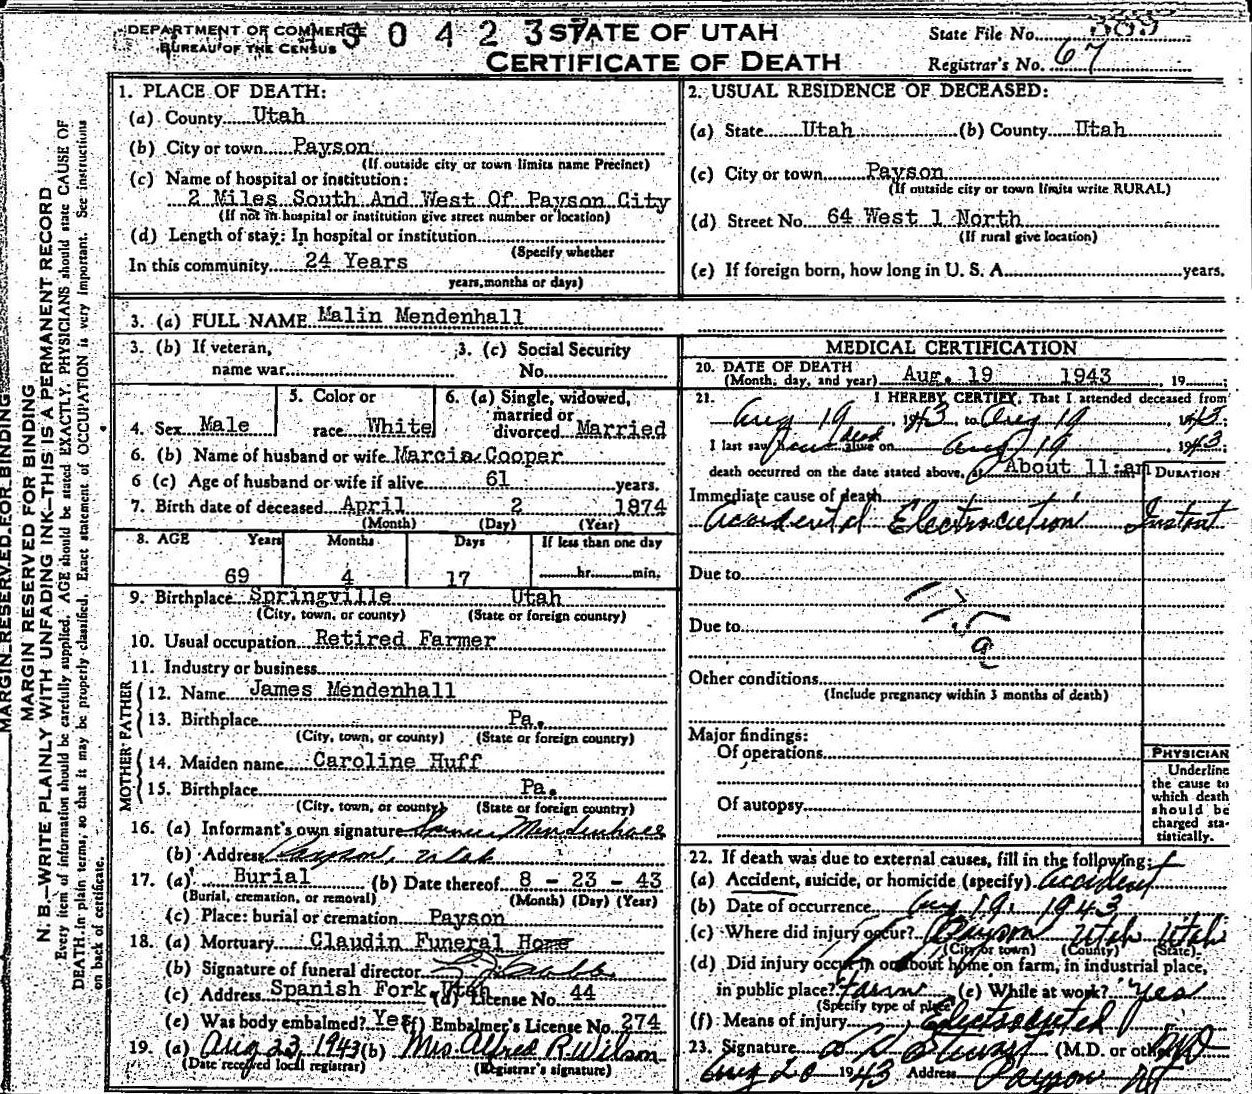 DEPARTMENT OF COMMERCE
BUREAU OF THE CENSUS
STATE OF UTAH
CERTIFICATE OF DEATH
State File No.
Registrar's No. 67
MARGIN RESERVED FOR BINDING
MARGIN RESERVED FOR BINDING
N. B.—WRITE PLAINLY WITH UNFADING INK—THIS IS A PERMANENT RECORD
Every item of information should be carefully supplied. AGE should be stated EXACTLY. PHYSICIANS should state CAUSE OF
DEATH in plain terms, so that it may be properly classified. Exact statement of OCCUPATION is very important. See instructions
on back of certificate.
1. PLACE OF DEATH:
(a) County Utah
(b) City or town Payson
(If outside city or town limits name Precinct)
(c) Name of hospital or institution:
2 Miles South And West Of Payson City
(If not in hospital or institution give street number or location)
(d) Length of stay: In hospital or institution
(Specify whether
In this community 24 Years
years, months or days)
2. USUAL RESIDENCE OF DECEASED:
(a) State Utah (b) County Utah
(c) City or town Payson
(If outside city or town limits write RURAL)
(d) Street No. 64 West 1 North
(If rural give location)
(e) If foreign born, how long in U. S. A. years.
3. (a) FULL NAME Malin Mendenhall
3. (b) If veteran,
name war
3. (c) Social Security
No.
4. Sex Male
5. Color or
race White
6. (a) Single, widowed,
married or
divorced Married
6. (b) Name of husband or wife Marcia Cooper
6 (c) Age of husband or wife if alive 61 years.
7. Birth date of deceased April 2 1874
(Month) (Day) (Year)
8. AGE Years Months Days If less than one day
69 4 17 hr. min.
9. Birthplace Springville Utah
(City, town, or county) (State or foreign country)
10. Usual occupation Retired Farmer
11. Industry or business
FATHER
12. Name James Mendenhall
13. Birthplace Pa.
(City, town, or county) (State or foreign country)
MOTHER
14. Maiden name Caroline Huff
15. Birthplace Pa.
(City, town, or county) (State or foreign country)
16. (a) Informant's own signature Mendenhall
(b) Address Payson, Utah
17. (a) Burial (b) Date thereof 8 - 23 - 43
(Burial, cremation, or removal) (Month) (Day) (Year)
(c) Place: burial or cremation Payson
18. (a) Mortuary Claudin Funeral Home
(b) Signature of funeral director
(c) Address Spanish Fork Utah (d) License No. 44
(e) Was body embalmed? Yes (f) Embalmer's License No. 274
19. (a) Aug 23, 1943 (b) Mrs. Alfred R. Wilson
(Date received local registrar) (Registrar's signature)
MEDICAL CERTIFICATION
20. DATE OF DEATH
(Month, day, and year) Aug. 19 1943, 19
21. I HEREBY CERTIFY, That I attended deceased from
Aug 19 1943 to Aug 19 1943
I last saw him dead alive on Aug 19 1943
death occurred on the date stated above, at About 11:am m.
DURATION
Immediate cause of death
Accidental Electrocution Instant
Due to
Due to
Other conditions
(Include pregnancy within 3 months of death)
Major findings:
Of operations
Of autopsy
PHYSICIAN
Underline
the cause to
which death
should be
charged sta-
tistically.
22. If death was due to external causes, fill in the following:
(a) Accident, suicide, or homicide (specify) Accident
(b) Date of occurrence Aug 19, 1943
(c) Where did injury occur? Payson Utah Utah
(City or town) (County) (State)
(d) Did injury occur in or about home on farm, in industrial place,
in public place? Farm (e) While at work? Yes
(Specify type of place)
(f) Means of injury Electrocuted
23. Signature Stewart (M.D. or other) MD
Aug 20 1943 Address Payson Ut